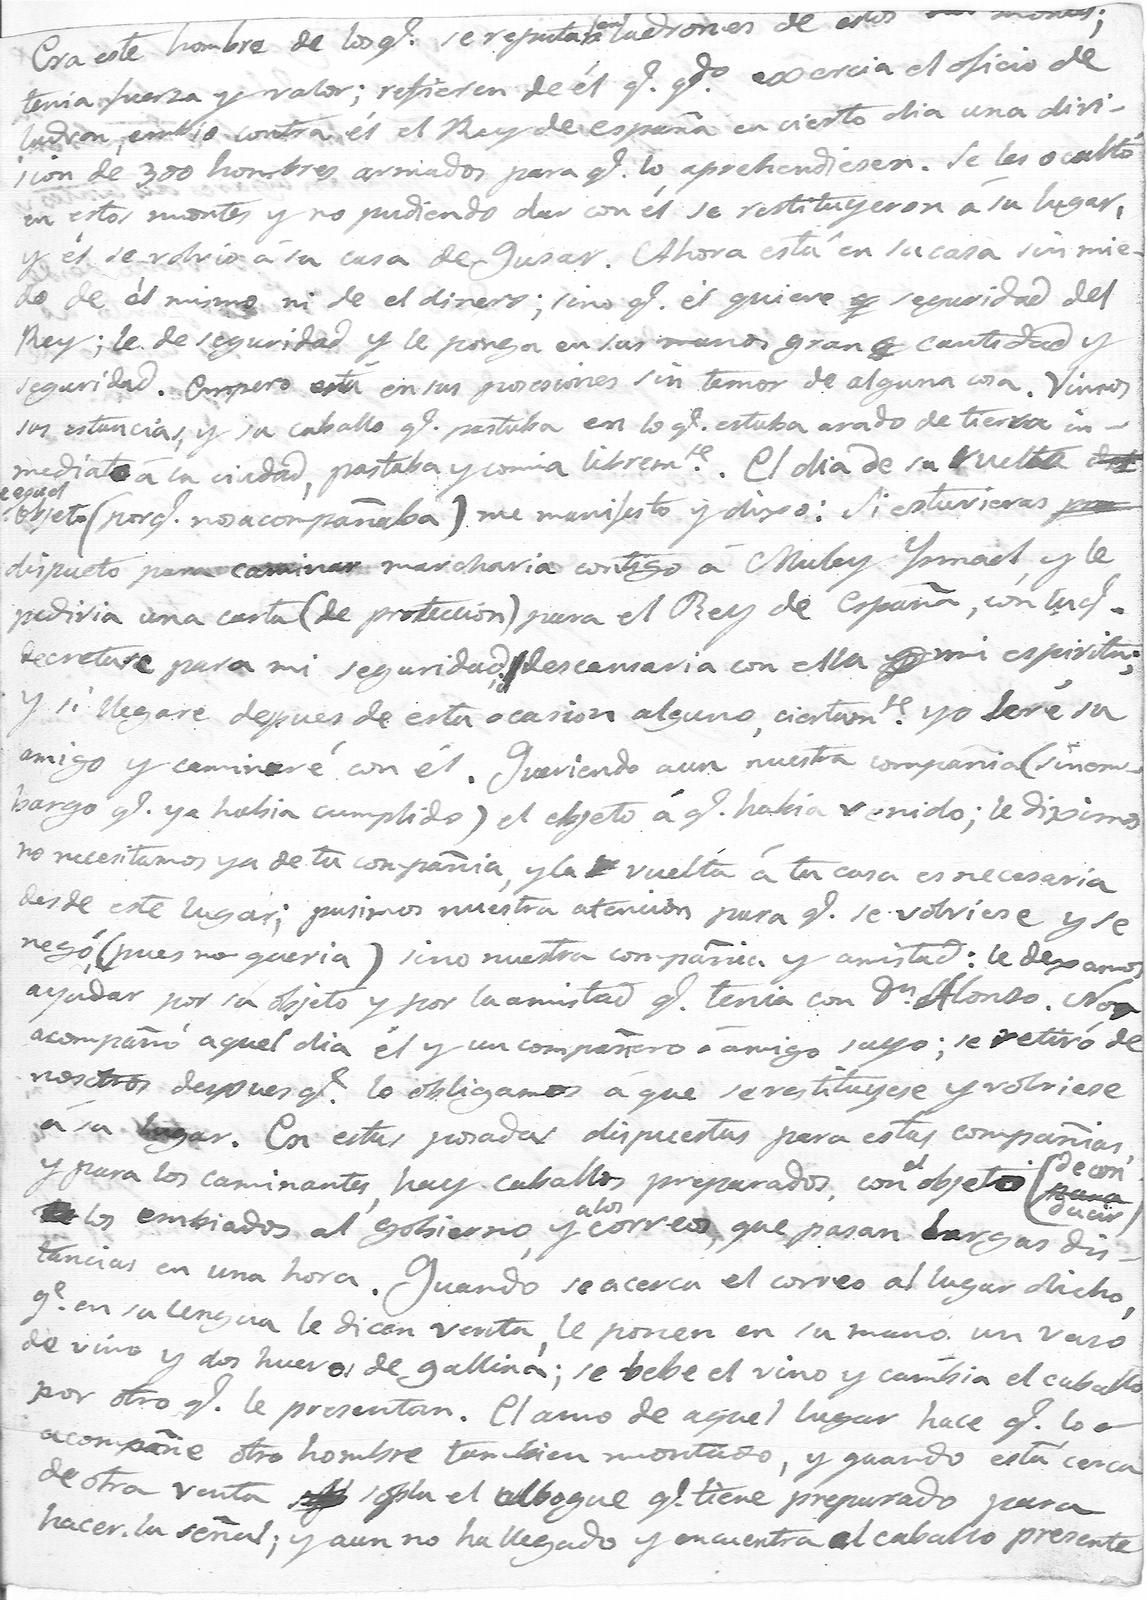 Era este hombre de los q.e se reputaban ladrones de estos montes;
tenia fuerza y valor; refieren de él q.e q.do exercia el oficio de
ladron, embió contra él el Rey de España en cierto dia una divi-
sion de 300 hombres armados para q.e lo aprehendiesen. Se les ocultó
en estos montes y no pudiendo dar con él se restituyeron á su lugar,
y él se volvió á su casa de Gusar. Ahora está en su casa sin mie-
do de él mismo ni de el dinero; sino q.e él quiere seguridad del
Rey; le de seguridad y le ponga en sus manos gran cantidad y
seguridad. Empero está en sus posesiones sin temor de alguna cosa. Vimos
sus estancias, y su caballo q.e pastaba en lo q.e estaba arado de tierra in-
mediato á la ciudad, pastaba y comia librem.te. El dia de su vuelta
objeto (porq.e nos acompañaba) me manifesto y dixo: Si estuvieras
dispueto para caminar marcharia contigo á Muley Ismael y le
pediria una carta (de proteccion) para el Rey de España, con la q.e
decretare para mi seguridad; descansaria con ella mi espiritu;
y si llegare depues de esta ocasion alguno, ciertam.te yo seré su
amigo y caminaré con él. Queriendo aun nuestra compañia (sinem-
bargo q.e ya habia cumplido) el objeto á q.e habia venido; le diximos
no necesitamos ya de tu compañia, y la vuelta á tu casa es necesaria
desde este lugar; pusimos nuestra atencion para q.e se volviese y se
negó (pues no queria) sino nuestra compañia y amistad: le dexamos
ayudar por su objeto y por la amistad q.e tenia con D.n Alonso. Nos
acompañó aquel dia él y un compañero ó amigo suyo; se retiró de
nosotros despues q.e lo obligamos á que se restituyese y volviese
á su lugar. En estas posadas dispuestas para estas compañias
y para los caminantes, hay caballos preparados, con el objeto (de con
ducir)
los embiados al gobierno, y a los correos, que pasan largas dis-
tancias en una hora. Quando se acerca el correo al lugar dicho,
q.e en su lengua le dicen venta, le ponen en su mano un vaso
de vino y dos huevos de gallina; se bebe el vino y cambia el caballo
por otro q.e le presentan. El amo de aquel lugar hace q.e lo
acompañe otro hombre tambien montado, y quando está cerca
de otra venta sopla el albogue q.e tiene preparado para
hacer la señal; y aun no ha llegado y encuentra el caballo presente